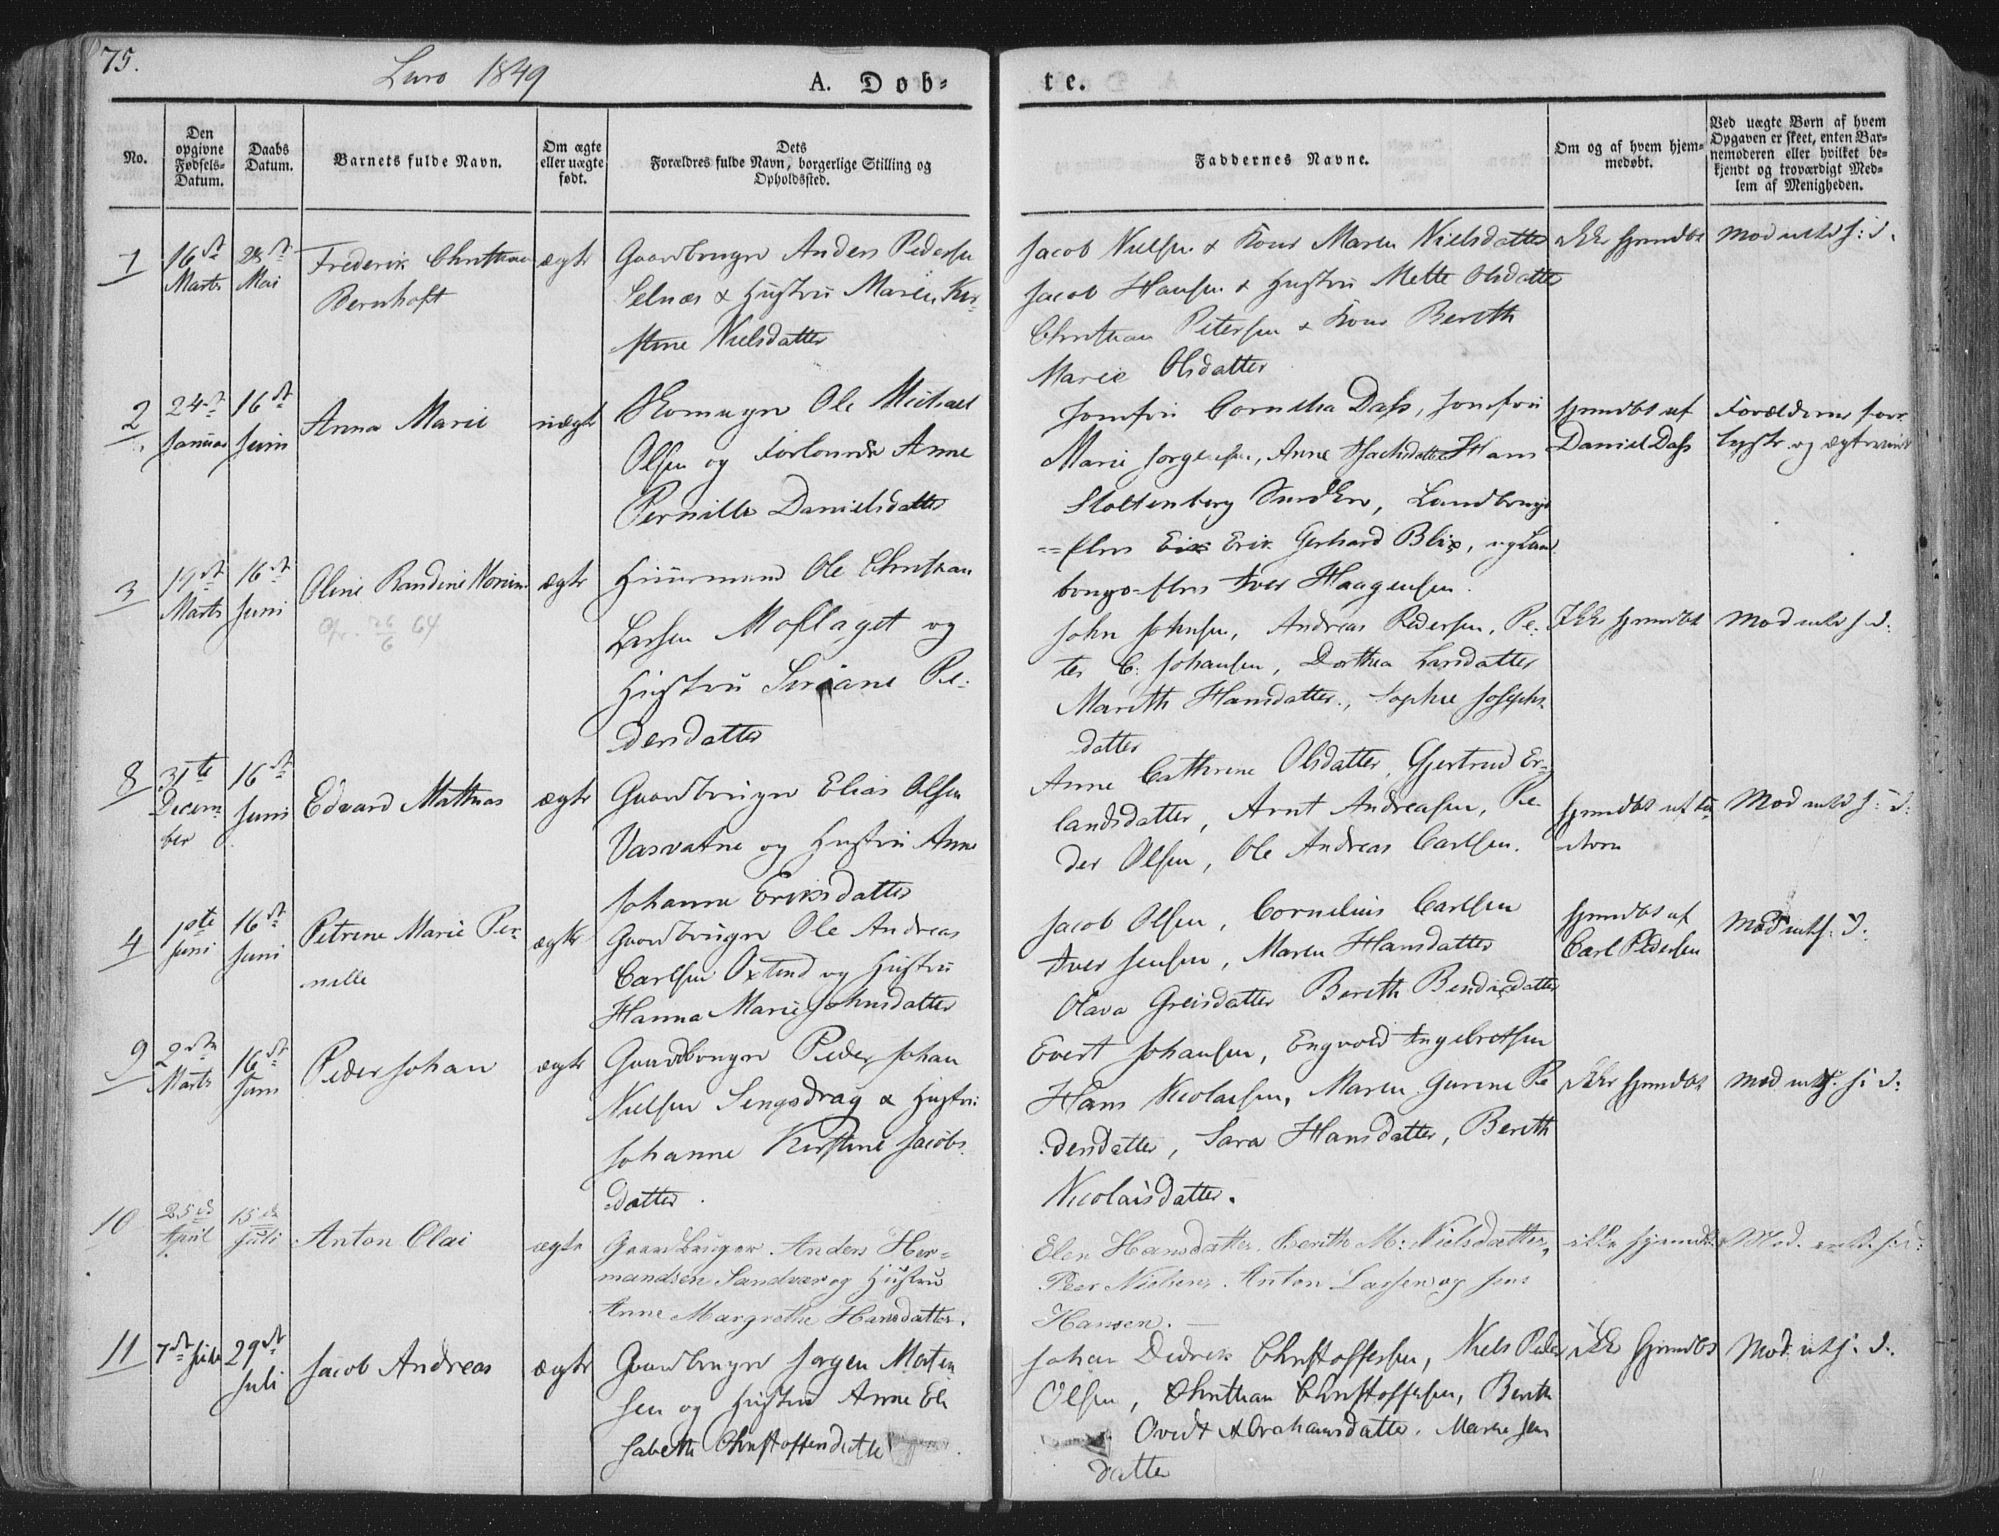 75.
Luro 1849
A. Døb-
te.
No.
Den opgivne Fødsels-Datum.
Daabs Datum.
Barnets fulde Navn.
Om ægte eller uægte født.
Dets Forældres fulde Navn, borgerlige Stilling og Opholdssted.
Faddernes Navne.
Om og af hvem hjem-medøbt.
Ved uægte Børn af hvem Opgaven er skeet, enten Bar-nemoderen eller hvilket be-kjendt og troværdigt Med-lem af Menigheden.
1
16de Marts
28de Mai
Frederik Christian
Bernhoft
ægte
Gaardbruger Anders Pedersen
Selnæs & Hustru Maren Kir-
stine Nielsdatter
Jacob Nielsen & Kone Maren Nielsdatter
Jacob Hansen & Hustru Mette Olsdatter
Christian Petersen & Kone Bereth
Marie Olsdatter
ikke hjemdbt
2
24de Januar
16de Juni
Anna Marie
uægte
Ole Michael
Olsen og Forlovede Anne
Pernille Danielsdatter
Jomfru Cornelia Dass, Jomfru
Marie Jørgensen, Anne Isachsdatter Hans
Stoltenberg
Erik Gerhard Blix,
Iver Haagensen.
hjemdbt af
Daniel Dass
3
19de Marts
16de Juni
Oline Randine
26/6 64
ægte
Huusmand Ole Christian
Larsen Moflaget og
Hustru Siriane Pe-
dersdatter
John Johnsen, Andreas Pedersen, Pe-
ter C. Johansen, Dorthea Larsdatter
Mareth Hansdatter, Sophie Josephs
datter
Ikke hjemdbt
8
31te Decem-
ber
16de Juni
Edvard Mathias
ægte
Gaardbruger Elias Olsen
Vasvatne og Hustru Anne
Johanna Eriksdatter
Anne Cathrine Olsdatter, Gjertrud Er-
landsdatter, Arnt Andreasen, Pe-
der Olsen, Ole Andreas Carlsen.
hjemdbt af
4
1ste Juni
16de Juni
Petrine Marie Per-
nille
ægte
Gaardbruger Ole Andreas
Carlsen Oxtind og Hustru
Hanna Marie Johnsdatter
Jacob Olsen, Cornelius Carlsen
Iver Jensen, Maren Hansdatter
Olava Greisdatter Bereth Bendixdatter
hjemdbt af
Carl Pedersen
9
2den Marts
16de Juni
Peder Johan
ægte
Gaardbruger Peder Johan
Nielsen Sengsdrag & Hustru
Johanne Kirstine Jacobs
datter.
Evert Johansen, Engvold Ingebretsen
Hans Nicolaisen, Maren Gurine Pe
dersdatter, Sara Hansdatter, Bereth
Nicolaisdatter.
ikke hjemdbt
10
25de April
15de Juli
Anton Olai
ægte
Gaardbruger Anders Her-
mandsen Sandvær og Hustru
Anne Margrethe Hansdatter.
Elen Hansdatter, Berith M: Nielsdatter,
Peer Nielsen, Anton Larsen og Jens
Hansen.
ikke hjemdbt
11
7de
29de Juli
Jacob Andreas
ægte
Gaardbruger Jørgen Morten
sen og Hustru Anne Eli
sabeth Christoffersdatter
Johan Didrik Christoffersen, Niels Peder
Olsen, Christian Christoffersen, Bereth
Abrahamsdatter, Maren Jens
datter
ikke hjemdbt